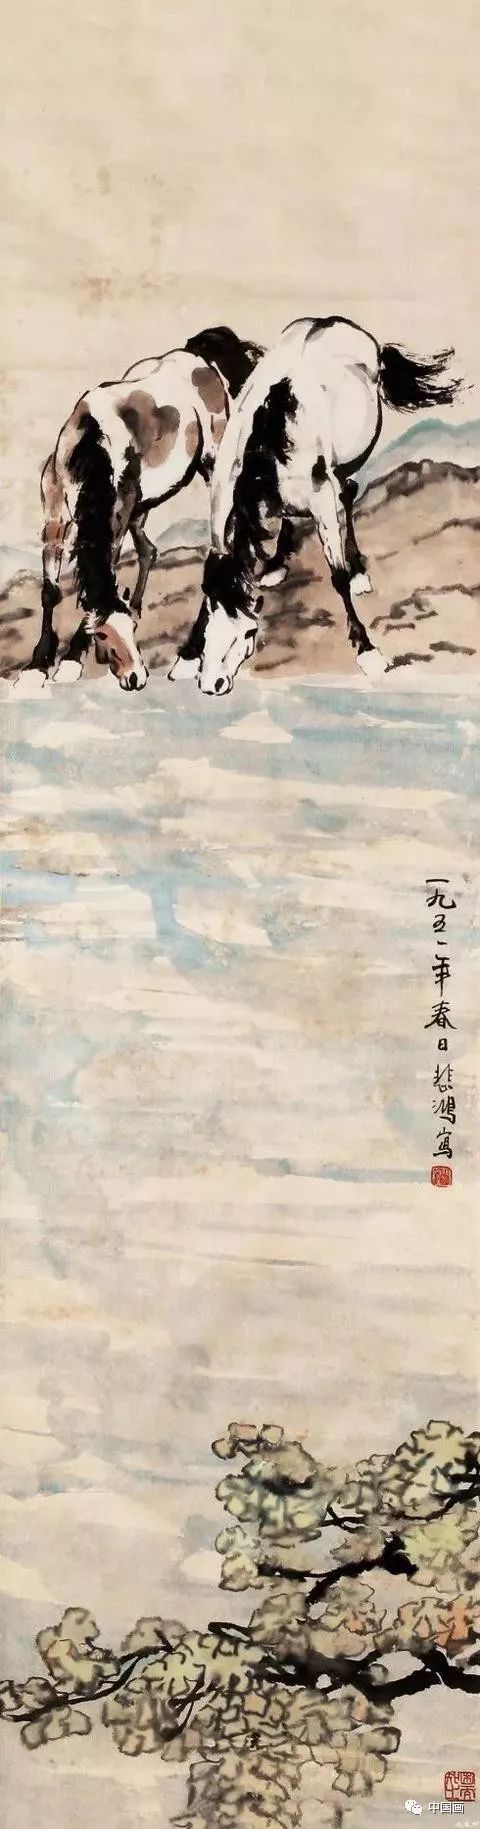 一九五一年春日悲鴻寫
中国画